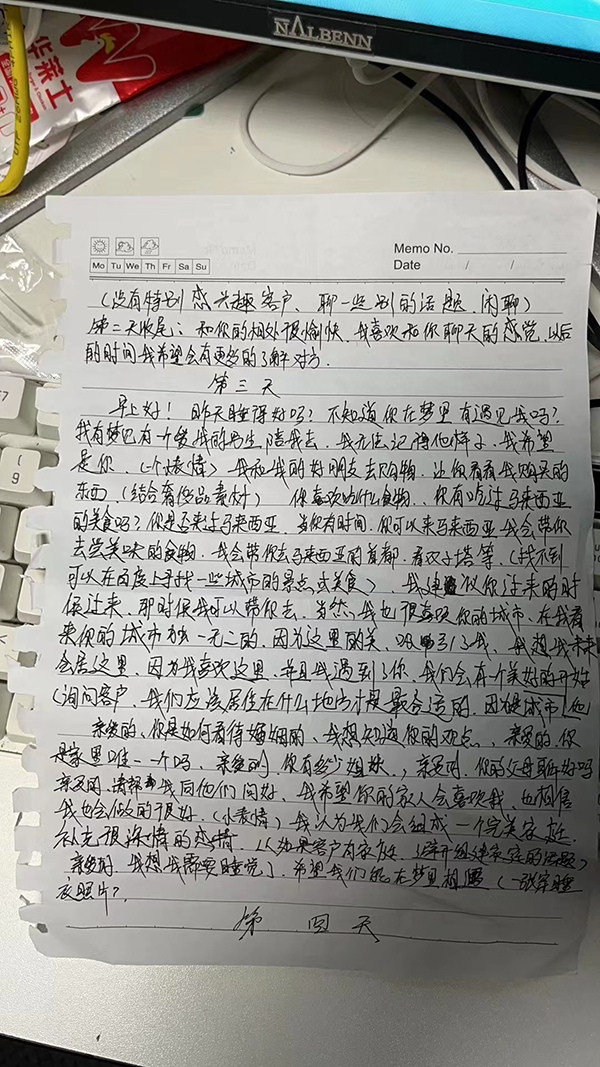 NALBENN
华莱士
Memo No.
Mo Tu We Th Fr Sa Su
Date / /
(没有特别感兴趣客户、聊一些别的话题、闲聊)
第二天收尾:和你的相处很愉快、我喜欢和你聊天的感觉、以后
的时间我希望会有更多的了解对方.
第三天
早上好!昨天睡得好吗?不知道你在梦里有遇见我吗?
我有梦见有一个爱我的男生陪我去、我无法记得他样子、我希望
是你、(一个表情)我和我的好朋友去购物、让你看看我购买的
东西、(结合奢侈品素材) 你喜欢吃什么食物、、你有吃过马来西亚
的美食吗?你是否来过马来西亚、当你有时间、你可以来马来西亚我会带你
去尝美味的食物、我会带你去马来西亚的首都、看双子塔等、(找不到
可以在百度上寻找一些城市的景点或美食)、我建议你过来的时
候过来、那时候我可以带你去、当然、我也很喜欢你的城市、在我看
来你的城市独一无二的、因为这里的美、吸引了我、我想我未来
会居这里、因为我喜欢这里、并且我遇到了你、我们会有个美好的开始
(询问客户、我们应该居住在什么地方才是最合适的、因为是城市
亲爱的、你是如何看待婚姻的、我想知道你的观点、、亲爱的、你
是家里唯一一个吗、亲爱的、你有多少姐妹、、亲爱的、你的父母
亲爱的、请帮我同他们问好、我希望你的家人会喜欢我、也相信
我也会做的很好、(小表情)我认为我们会组成一个完美家庭
补充很深情的感情、以如果客户有家庭、避开组建家庭的话题)
亲爱的、我想我需要睡觉了、希望我们能在梦里相遇(一张穿睡
衣照片?
第四天